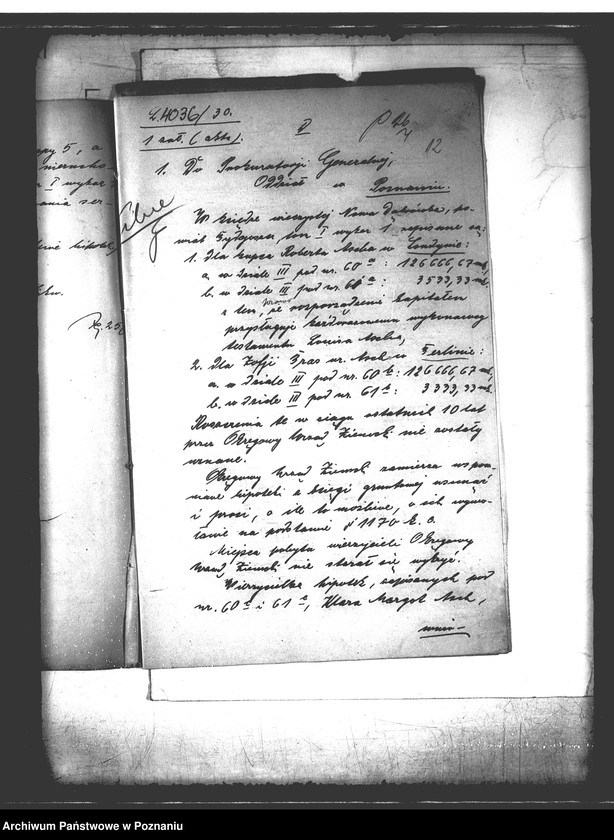 L.4036/30.
1 zał. (akta).
12
1. Do Prokuratorji Generalnej,
Oddział w Poznaniu.
Pilne
W księdze wieczystej Nowa Dąbrówka, po-
wiat Bydgoszcz, tom I wykaz 1 zapisane są:
1. dla kupca Roberta Ascha w Londynie:
a. w dziale III pod nr. 60 a: 126666,67 mk,
b. w dziale III pod nr. 61 a: 3533,33 mk.
z tem, że prawo rozporządzenia kapitałem
przysługuje każdoczesnemu wykonawcy
testamentu Louisa Ascha,
2. dla Zofji ur. Asch w Berlinie:
a. w dziale III pod nr. 60 b: 126666,67 mk,
b. w dziale III pod nr. 61 b: 3333,33 mk.
Roszczenia te w ciągu ostatnich 10 lat
przez Okręgowy Urząd Ziemski nie zostały
uznane.
Okręgowy Urząd Ziemski zamierza wspom-
niane hipoteki z księgi gruntowej usunąć
i prosi, o ile to możliwe, o ich wywo-
łanie na podstawie § 1170 k. c.
Miejsca pobytu wierzycieli Okręgowy
Urząd Ziemski nie starał się wykryć.
Wierzycielka hipotek, zapisanych pod
nr. 60 c i 61 c, Klara Margot Asch,
Archiwum Państwowe w Poznaniu